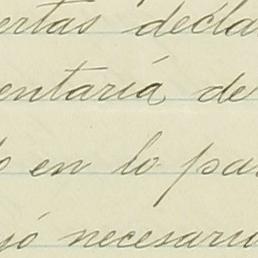 ertas decla
entaría de
o en lo pa
jó necesari